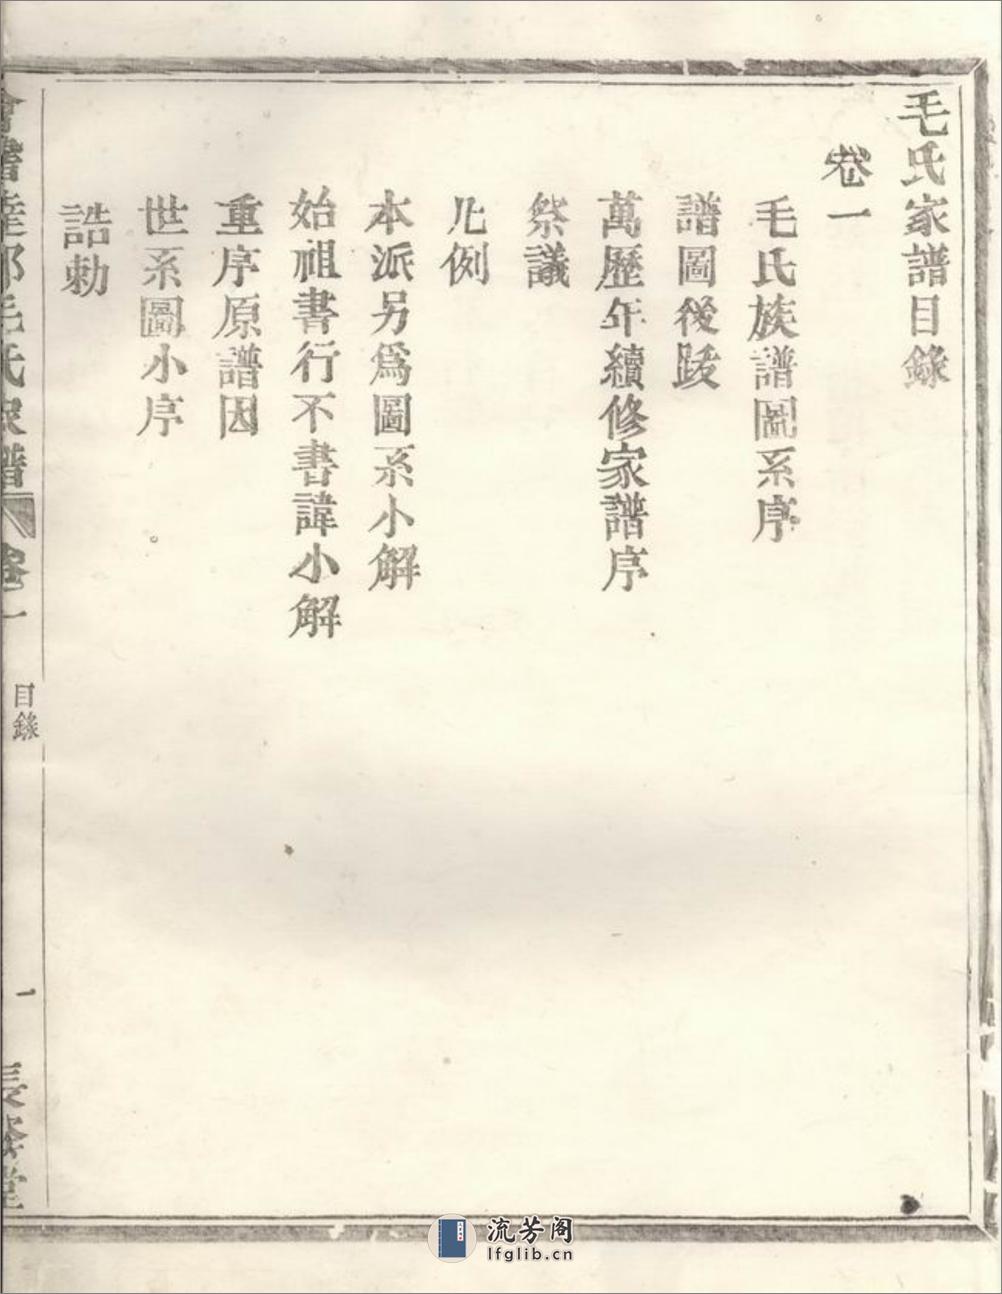 毛氏家譜目錄
卷一
毛氏族譜圖系序
譜圖後跋
萬歷年續修家譜序
祭議
凡例
本派另爲圖系小解
始祖書行不書諱小解
重序原譜因
世系圖小序
誥勅
毛氏家譜
卷一
目錄
一
長發堂
流芳阁
lfglib.cn